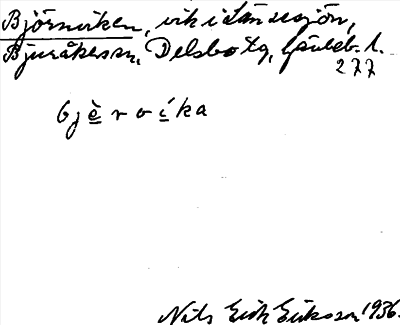 Björnviken, vik i Länsesjön,
Bjuråkers sn, Delsbo tg, Gävleb. l.
277
bjè̲rvoí̲ka
Nils Erik Eriksson 1936.